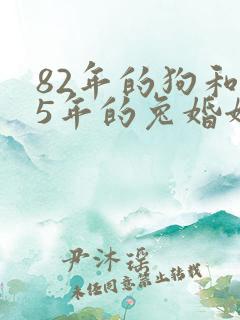 82年的狗和
5年的兔婚姻
尹沐瑶
未经同意禁止转载